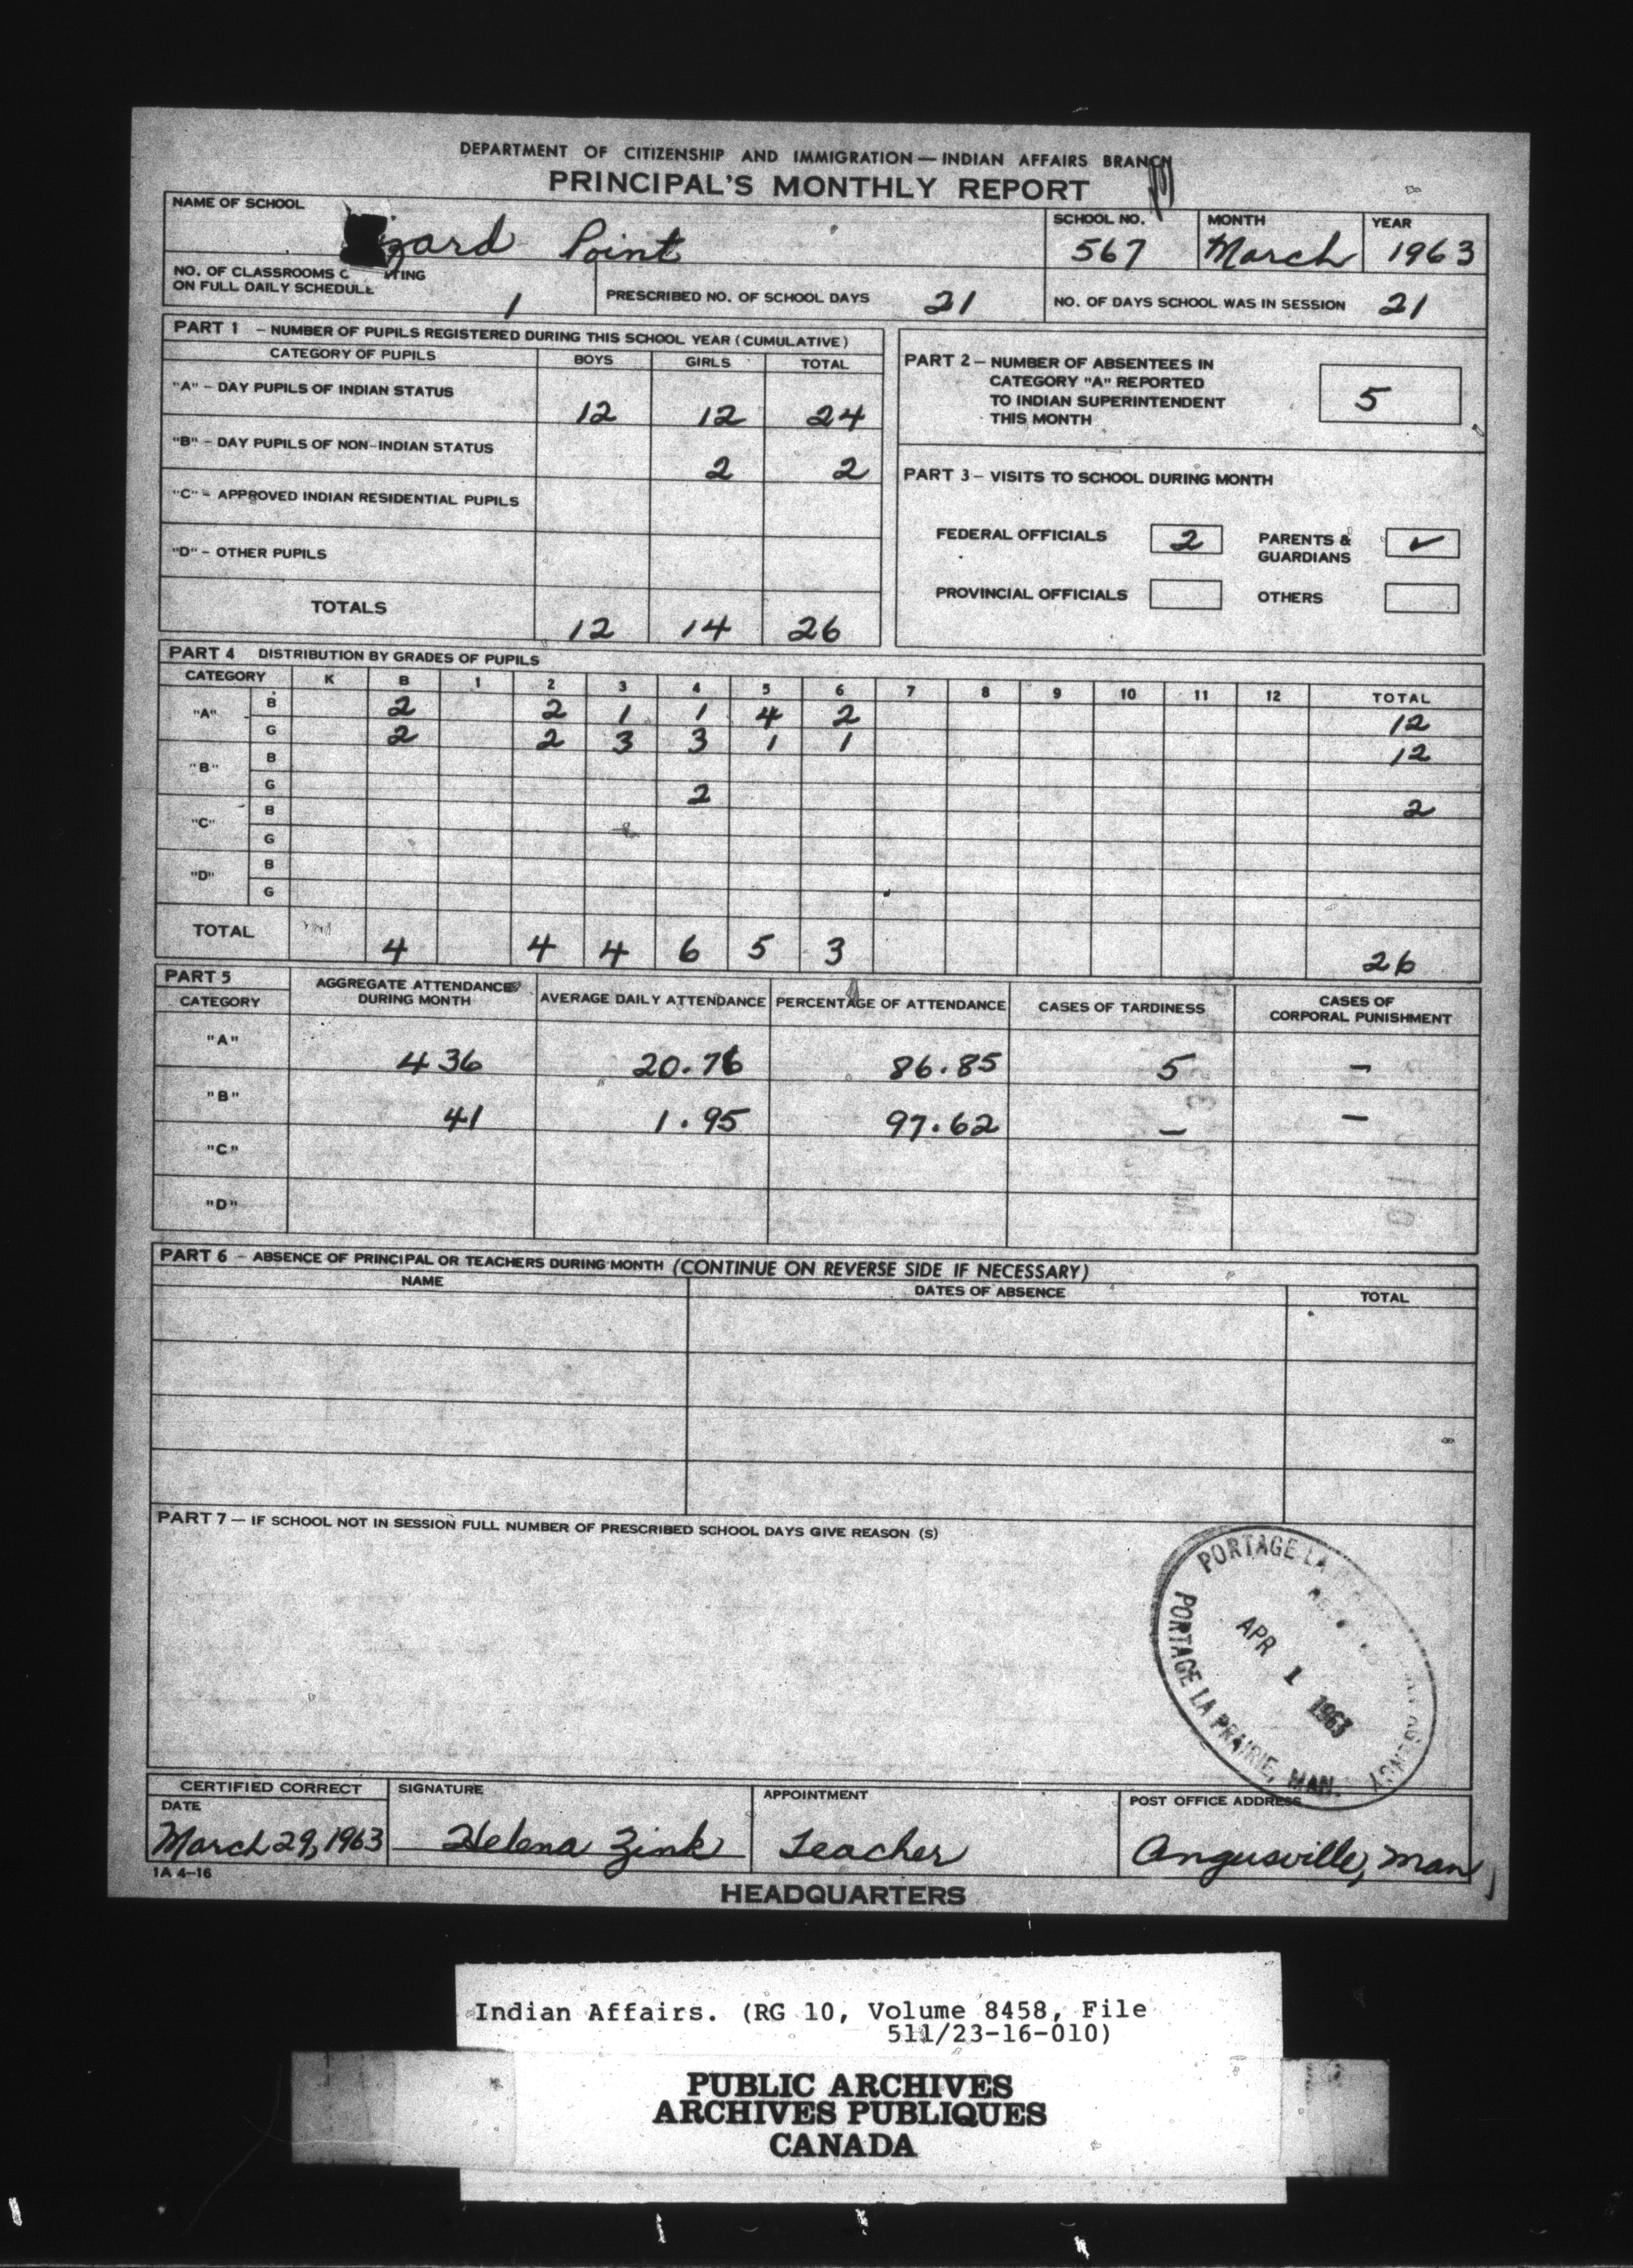 DEPARTMENT OF CITIZENSHIP AND IMMIGRATION — INDIAN AFFAIRS BRANCH
PRINCIPAL'S MONTHLY REPORT
NAME OF SCHOOL
zard Point
SCHOOL NO.
567
MONTH
March
YEAR
1963
NO. OF CLASSROOMS
ON FULL DAILY SCHEDULE
1
PRESCRIBED NO. OF SCHOOL DAYS 21
NO. OF DAYS SCHOOL WAS IN SESSION 21
PART 1 – NUMBER OF PUPILS REGISTERED DURING THIS SCHOOL YEAR (CUMULATIVE)
CATEGORY OF PUPILS BOYS GIRLS TOTAL
"A" – DAY PUPILS OF INDIAN STATUS 12 12 24
"B" – DAY PUPILS OF NON-INDIAN STATUS 2 2
"C" – APPROVED INDIAN RESIDENTIAL PUPILS
"D" – OTHER PUPILS
TOTALS 12 14 26
PART 2 – NUMBER OF ABSENTEES IN
CATEGORY "A" REPORTED
TO INDIAN SUPERINTENDENT
THIS MONTH
5
PART 3 – VISITS TO SCHOOL DURING MONTH
FEDERAL OFFICIALS 2 PARENTS &
GUARDIANS ✓
PROVINCIAL OFFICIALS OTHERS
PART 4 DISTRIBUTION BY GRADES OF PUPILS
CATEGORY K B 1 2 3 4 5 6 7 8 9 10 11 12 TOTAL
"A" B 2 2 1 1 4 2 12
G 2 2 3 3 1 1 12
"B" B
G 2 2
"C" B
G
"D" B
G
TOTAL 4 4 4 6 5 3 26
PART 5
CATEGORY
AGGREGATE ATTENDANCE
DURING MONTH
AVERAGE DAILY ATTENDANCE
PERCENTAGE OF ATTENDANCE
CASES OF TARDINESS
CASES OF
CORPORAL PUNISHMENT
"A" 436 20.76 86.85 5 –
"B" 41 1.95 97.62 – –
"C"
"D"
PART 6 – ABSENCE OF PRINCIPAL OR TEACHERS DURING MONTH (CONTINUE ON REVERSE SIDE IF NECESSARY)
NAME DATES OF ABSENCE TOTAL
PART 7 — IF SCHOOL NOT IN SESSION FULL NUMBER OF PRESCRIBED SCHOOL DAYS GIVE REASON (S)
PORTAGE LA AGENCY
APR 1 1963
PORTAGE LA PRAIRIE, MAN.
CERTIFIED CORRECT
DATE
March 29, 1963
SIGNATURE
Helena Zink
APPOINTMENT
Teacher
POST OFFICE ADDRESS
Angusville, Man
1A 4-16
HEADQUARTERS
Indian Affairs. (RG 10, Volume 8458, File
511/23-16-010)
PUBLIC ARCHIVES
ARCHIVES PUBLIQUES
CANADA